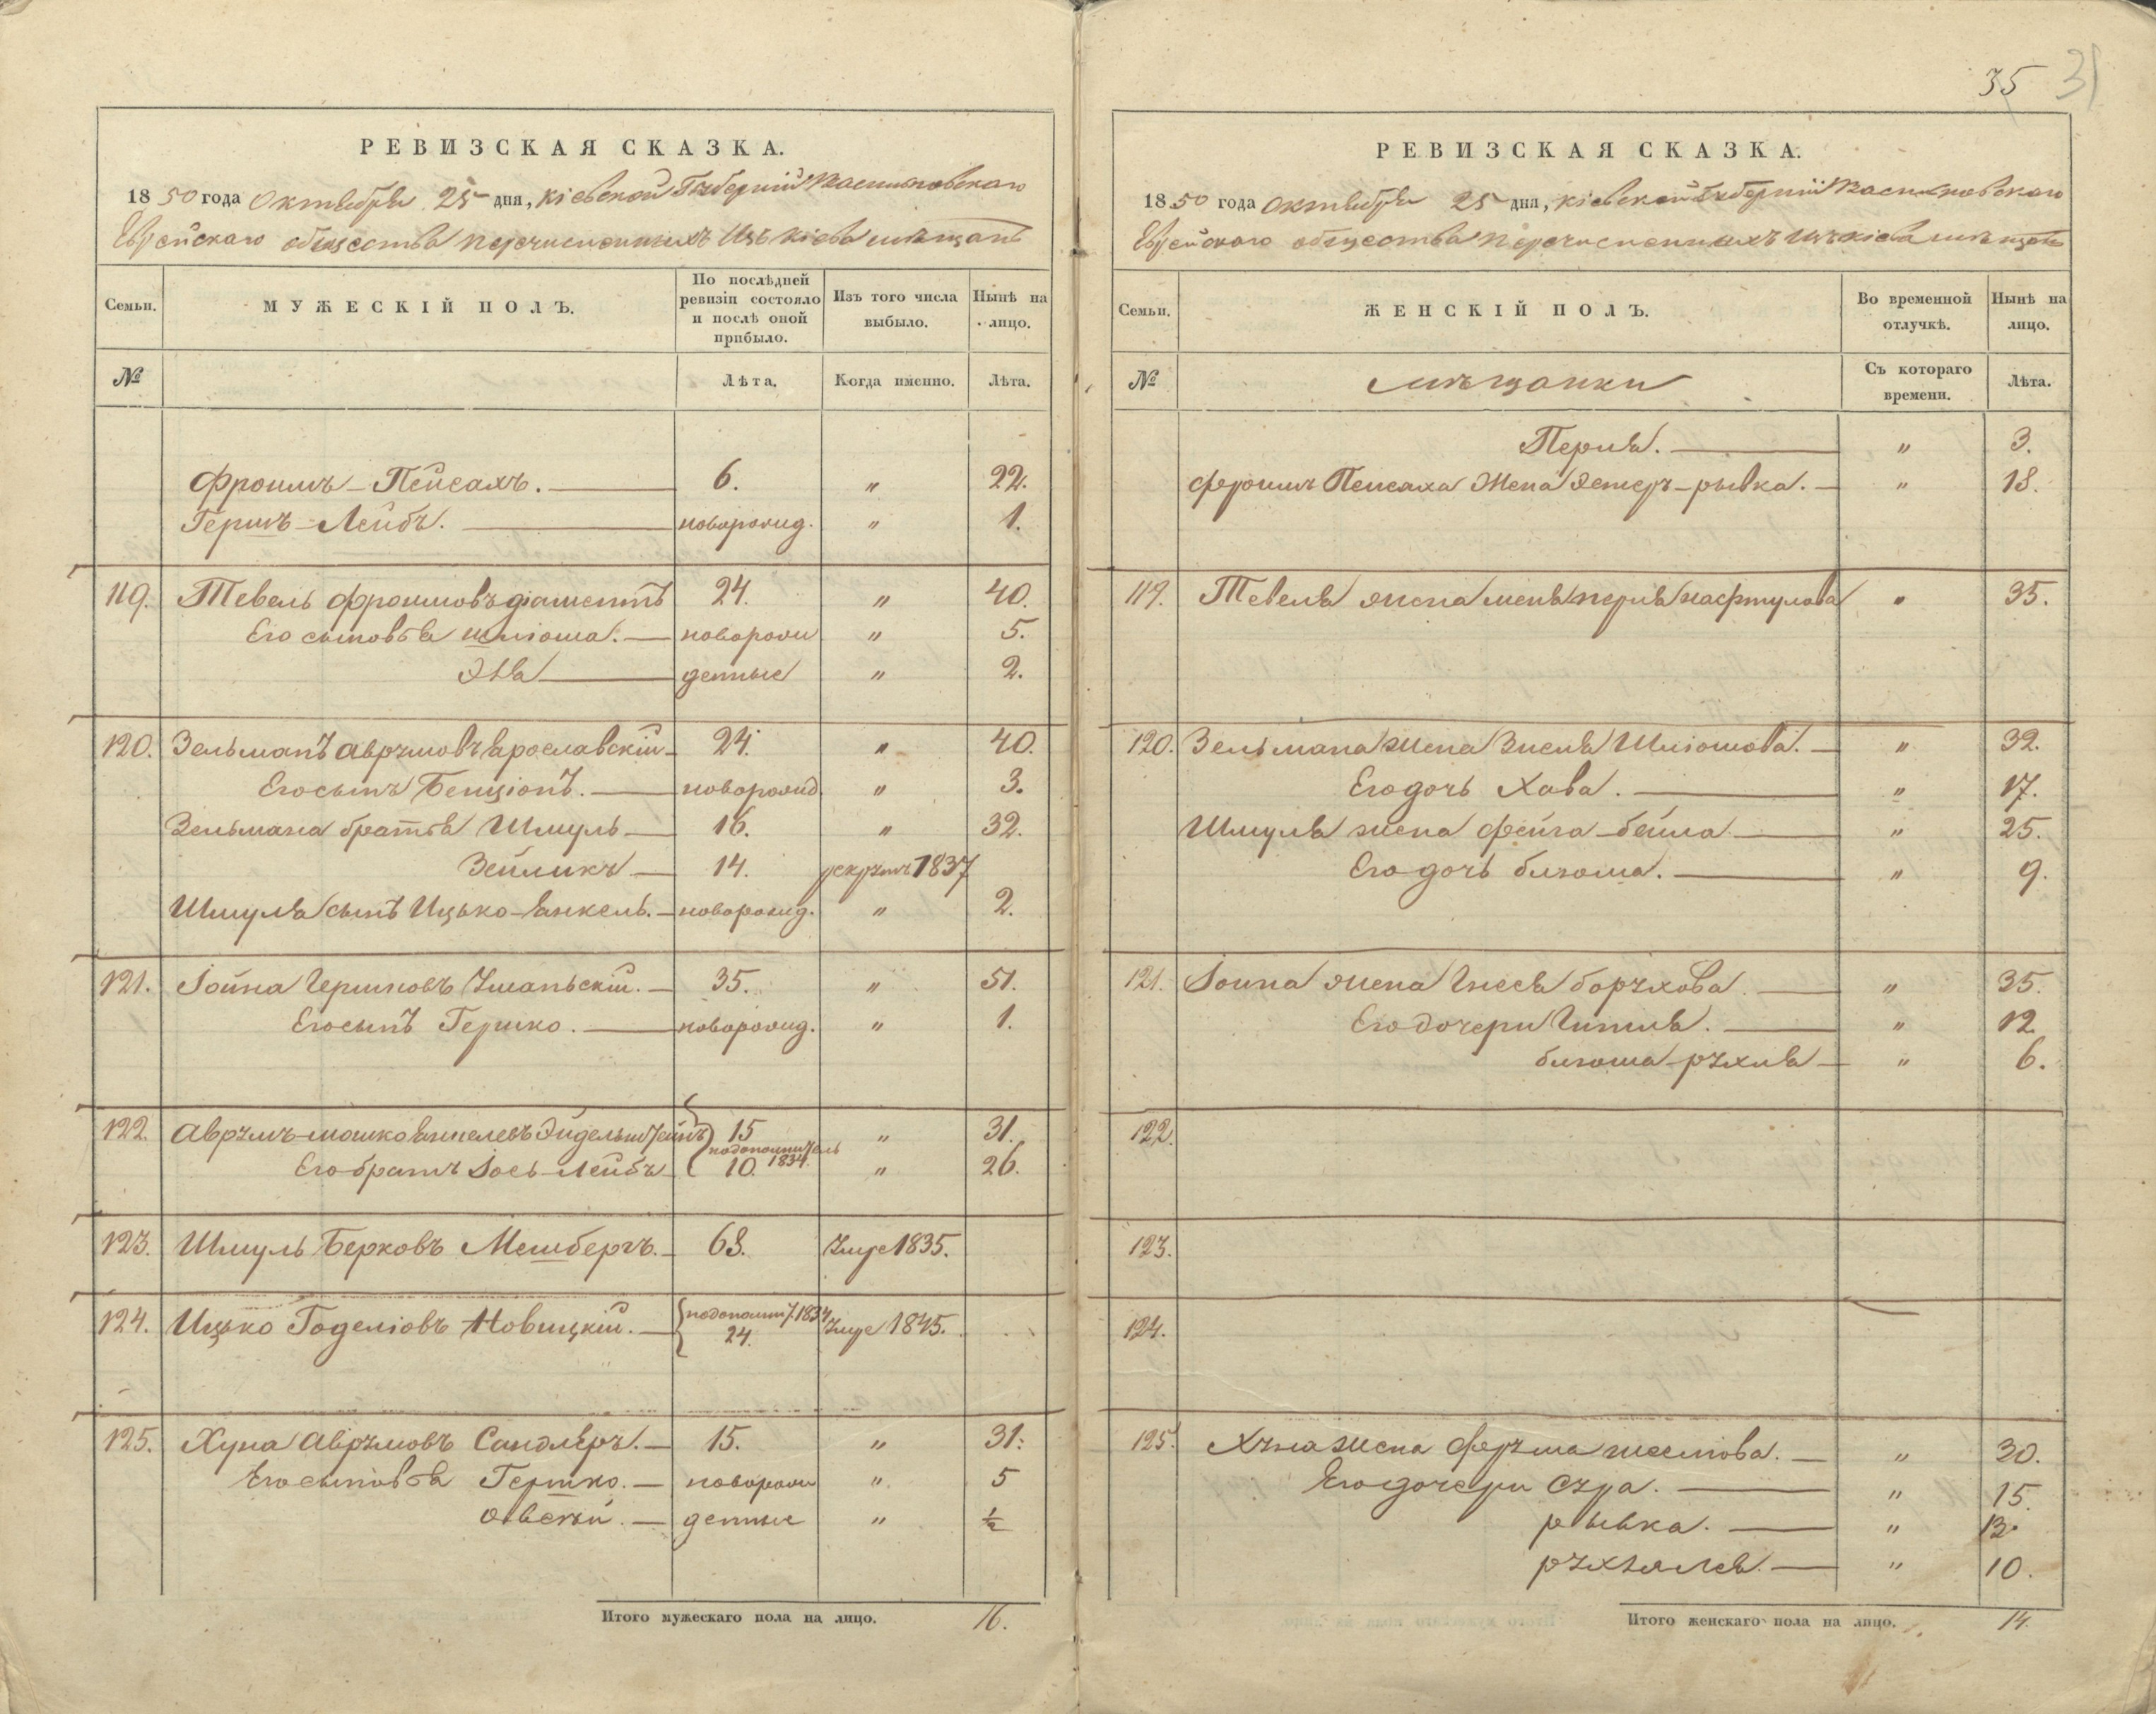 35 31
РЕВИЗСКАЯ СКАЗКА.
1850 года Октября 25 дня, Кіевской Губерніи Васильковскаго
Еврейскаго общества перечисленныхъ изъ Кіева мѣщанъ
Семьи. МУЖЕСКІЙ ПОЛЪ. По послѣдней ревизіи состояло и послѣ оной прибыло. Изъ того числа выбыло. Нынѣ на лицо.
№ Лѣта. Когда именно. Лѣта.
Фроимъ-Пейсахъ. 6. " 22.
Гершъ-Лейбъ. новорожд. " 1.
119. Тевель Фроимовъ 24. " 40.
Его сыновья Шліома. новорож " 5.
Эля денные " 2.
120. Зельманъ Аврумовъ Ярославскій 24. " 40.
Его сынъ Бенціонъ. новорожд " 3.
Зельмана братья Шмуль 16. " 32.
Зейликъ 14. рекрутъ 1837
Шмуля сынъ Ицько-Янкель. новорожд. " 2.
121. Іойна Гершковъ Уманьскій. 35. " 51.
Его сынъ Гершко. новорожд. " 1.
122. Аврумъ-Мошко Янкелевъ 15 " 31.
1834
Его братъ Іось-Лейбъ 10. " 26.
123. Шмуль Берковъ Мешбергъ. 68. Умре 1835.
124. Ицько Годеліовъ Новицкій. 1834 24. Умре 1845.
125. Хуна Аврумовъ Сандлеръ. 15. " 31.
Его сыновья Гершко. новорож " 5
Овсѣй. денные " ½
Итого мужескаго пола на лицо. 16.
РЕВИЗСКАЯ СКАЗКА.
1850 года Октября 25 дня, Кіевской Губерніи Васильковскаго
Еврейскаго общества перечисленныхъ изъ Кіева мѣщанъ
Семьи. ЖЕНСКІЙ ПОЛЪ. Во временной отлучкѣ. Нынѣ на лицо.
№ Мѣщанки Съ котораго времени. Лѣта.
Перля. " 3.
Фроимъ Пейсаха жена Эстеръ-Рывка. " 18.
119. Тевеля жена Меня Перля Нафтулова " 35.
120. Зельмана жена Зисля Шліомова. " 32.
Его дочь Хава. " 17.
Шмуля жена Фейга-Бейла " 25.
Его дочь Блюма. " 9.
121. Іойна жена Гнеся Борухова. " 35.
Его дочери Гитля. " 12
Блюма-Рухля " 6.
122.
123.
124.
125. Хуна жена Фрума " 30.
Его дочери Сура. " 15.
Рывка. " 13.
" 10.
Итого женскаго пола на лицо. 14.